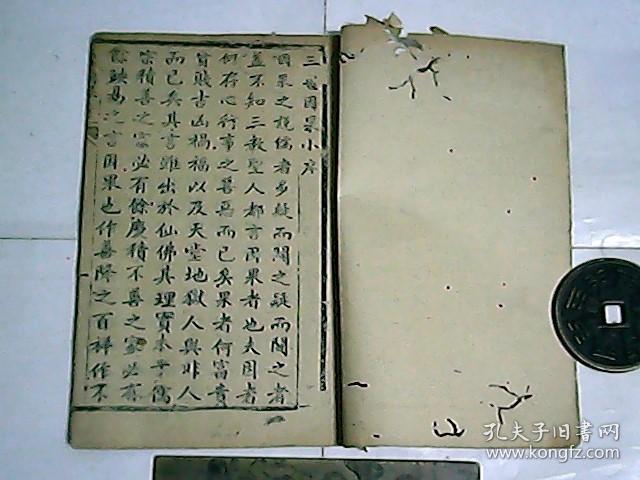 三世因果小序
因果之説儒者多疑而闢之疑而闢之者
蓋不知三教聖人都言因果者也夫因者
何存心行事之善惡而已矣果者何富貴
貧賤吉凶禍福以及天堂地獄人與非人
而已矣其言雖出於仙佛其理實本乎儒
宗積善之家必有餘慶積不善之家必有
餘殃易之言因果也作善降之百祥作不
孔夫子旧书网
www.kongfz.com